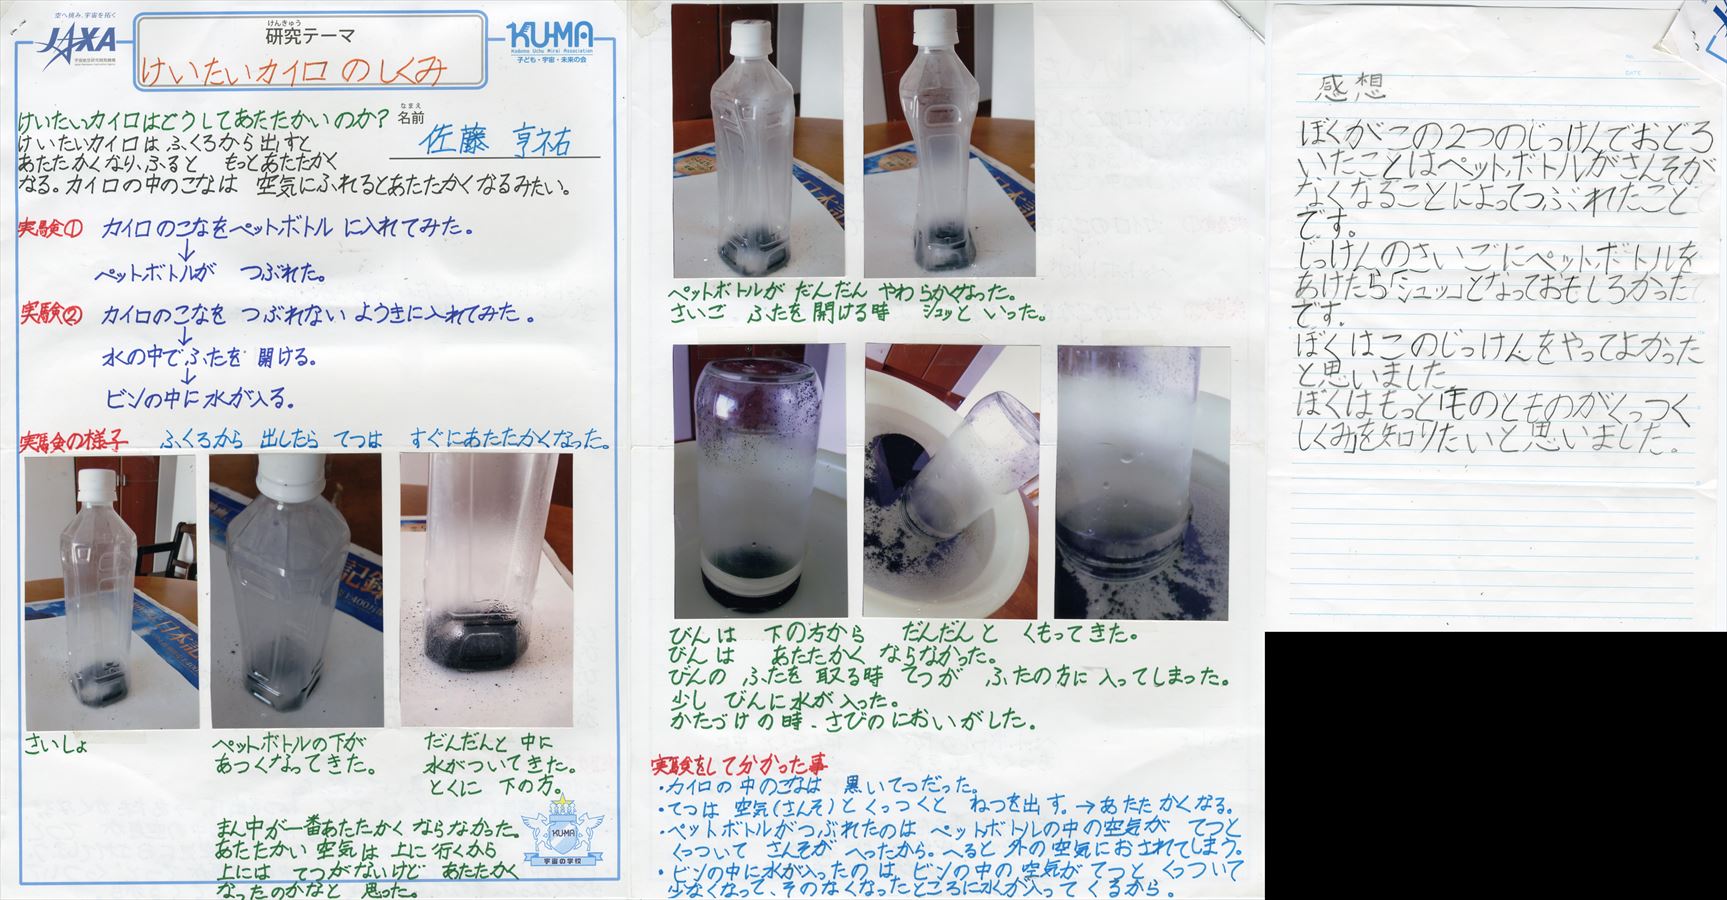 空へ挑み、宇宙を拓く
JAXA
けんきゅう
研究テーマ
けいたいカイロ のしくみ
KU-MA
Kodomo Uchu Mirai Association
子ども・宇宙・未来の会
けいたいカイロはどうしてあたたかいのか?
なまえ
名前
佐藤 亨祐
けいたいカイロは ふくろから出すと
あたたかくなり、ふると もっとあたたかく
なる。カイロの中のこなは 空気にふれるとあたたかくなるみたい。
実験① カイロのこなをペットボトル に入れてみた。
↓
ペットボトルが つぶれた。
実験② カイロのこなを つぶれない ようきに入れてみた。
↓
水の中でふたを 開ける。
↓
ビンの中に水が入る。
実験の様子 ふくろから 出したら てつは すぐにあたたかくなった。
さいしょ
ペットボトルの下が
あつくなってきた。
だんだんと 中に
水がついてきた。
とくに 下の方。
まん中が一番あたたかく ならなかった。
あたたかい 空気は 上に 行くから
上には てつがないけど あたたかく
なったのかなと 思った。
KU-MA
宇宙の学校
ペットボトルが だんだん やわらかくなった。
さいご ふたを 開ける時 シュッと いった。
びんは 下の方から だんだんと くもってきた。
びんは あたたかく ならなかった。
びんの ふたを 取る時 てつが ふたの方に 入ってしまった。
少し びんに水が 入った。
かたづけの時、さびのにおいがした。
実験をして分かった事
・カイロの中のこなは 黒いてつだった。
・てつは 空気(さんそ)と くっつくと ねつを出す。→あたたかくなる。
・ペットボトルがつぶれたのは ペットボトルの中の空気が てつと
くっついて さんそが へったから。へると 外の空気におされてしまう。
・ビンの中に水が入ったのは、ビンの中の空気がてつと くっついて
少なくなって、そのなくなったところに水が入ってくるから。
NO.
DATE
感想
ぼくがこの2つのじっけんでおどろ
いたことはペットボトルがさんそが
なくなることによってつぶれたこと
です。
じっけんのさいごにペットボトルを
あけたら「シュッ」となっておもしろかった
です。
ぼくはこのじっけんをやってよかった
と思いました。
ぼくはもっと「ものとものがくっつく
しくみ」を知りたいと思いました。